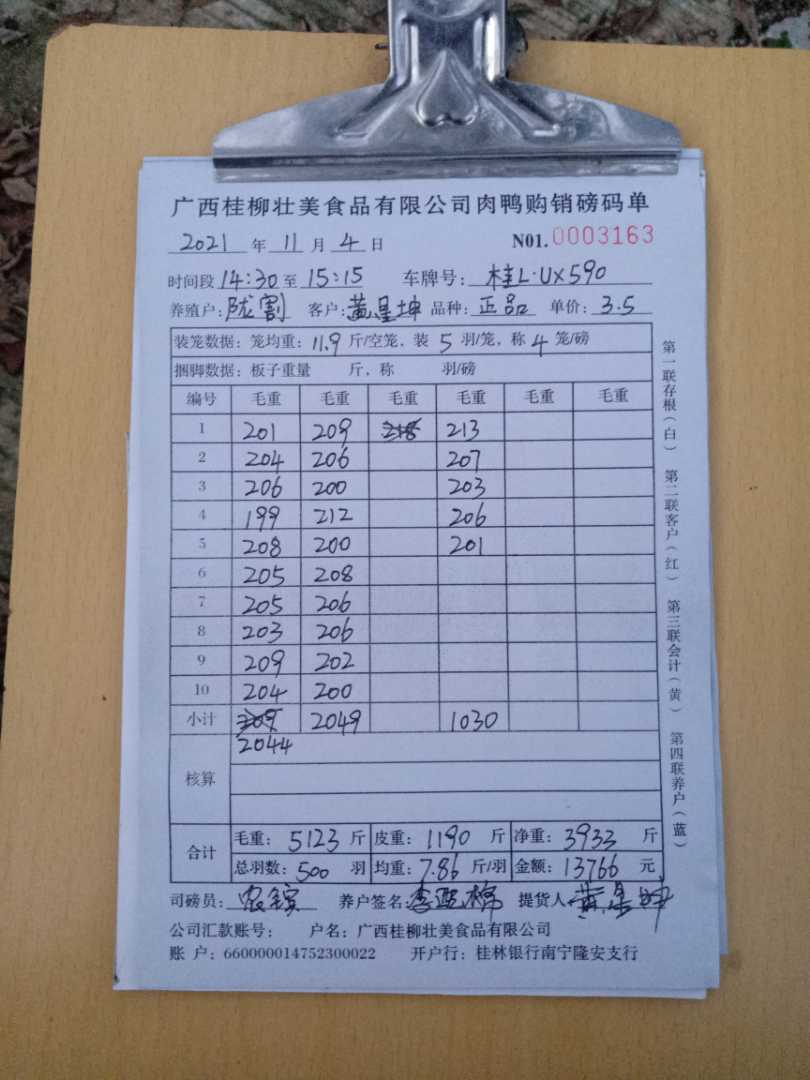 广西桂柳壮美食品有限公司肉鸭购销磅码单
2021 年 11 月 4 日 N01.0003163
时间段 14:30 至 15:15 车牌号: 桂L·UX590
养殖户: 陇割 客户: 黄星坤 品种: 正品 单价: 3.5
装笼数据: 笼均重: 11.9 斤/空笼, 装 5 羽/笼, 称 4 笼/磅
捆脚数据: 板子重量 斤, 称 羽/磅
编号 毛重 毛重 毛重 毛重 毛重 毛重
1 201 209 213
2 204 206 207
3 206 200 203
4 199 212 206
5 208 200 201
6 205 208
7 205 206
8 203 206
9 209 202
10 204 200
小计 2049 1030
2044
核算
合计 毛重: 5123 斤 皮重: 1190 斤 净重: 3933 斤
总羽数: 500 羽 均重: 7.86 斤/羽 金额: 13766 元
司磅员: 养户签名: 提货人 黄星坤
公司汇款账号: 户名: 广西桂柳壮美食品有限公司
账 户: 660000014752300022 开户行: 桂林银行南宁隆安支行
第一联存根(白) 第二联客户(红) 第三联会计(黄) 第四联养户(蓝)